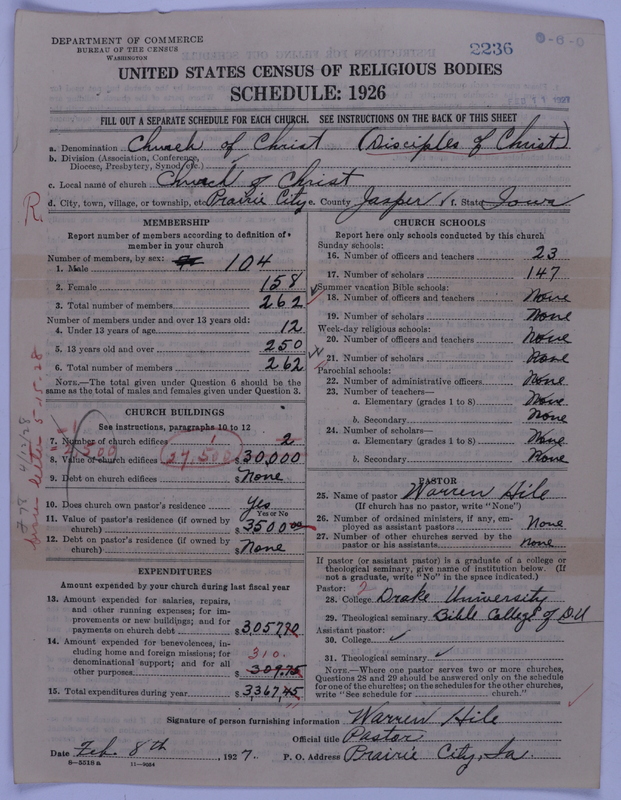 DEPARTMENT OF COMMERCE
BUREAU OF THE CENSUS
WASHINGTON
2236
UNITED STATES CENSUS OF RELIGIOUS BODIES
SCHEDULE: 1926
FILL OUT A SEPARATE SCHEDULE FOR EACH CHURCH. SEE INSTRUCTIONS ON THE BACK OF THIS SHEET
a. Denomination Church of Christ (Disciples of Christ)
b. Division (Association, Conference, Diocese, Presbytery, Synod, etc.)
c. Local name of church Church of Christ
d. City, town, village, or township, etc. Prairie City e. County Jasper f. State Iowa
R
MEMBERSHIP
Report number of members according to definition of member in your church
Number of members, by sex:
1. Male 104
2. Female 158
3. Total number of members 262
Number of members under and over 13 years old:
4. Under 13 years of age 12
5. 13 years old and over 250
6. Total number of members 262
NOTE.—The total given under Question 6 should be the same as the total of males and females given under Question 3.
CHURCH BUILDINGS
See instructions, paragraphs 10 to 12
7. Number of church edifices 1 2
8. Value of church edifices 27,500 $30,000
9. Debt on church edifices $None
10. Does church own pastor's residence Yes
Yes or No
11. Value of pastor's residence (if owned by church) $3500 00
12. Debt on pastor's residence (if owned by church) $None
EXPENDITURES
Amount expended by your church during last fiscal year
13. Amount expended for salaries, repairs, and other running expenses; for improvements or new buildings; and for payments on church debt $3057.70
14. Amount expended for benevolences, including home and foreign missions; for denominational support; and for all other purposes 310. $309.75
15. Total expenditures during year $3367.45
CHURCH SCHOOLS
Report here only schools conducted by this church
Sunday schools:
16. Number of officers and teachers 23
17. Number of scholars 147
Summer vacation Bible schools:
18. Number of officers and teachers None
19. Number of scholars None
Week-day religious schools:
20. Number of officers and teachers None
21. Number of scholars None
Parochial schools:
22. Number of administrative officers None
23. Number of teachers—
a. Elementary (grades 1 to 8) None
b. Secondary None
24. Number of scholars—
a. Elementary (grades 1 to 8) None
b. Secondary None
PASTOR
25. Name of pastor Warren Hile
(If church has no pastor, write "None")
26. Number of ordained ministers, if any, employed as assistant pastors None
27. Number of other churches served by the pastor or his assistants None
If pastor (or assistant pastor) is a graduate of a college or theological seminary, give name of institution below. (If not a graduate, write "No" in the space indicated.)
Pastor:
28. College Drake University
29. Theological seminary Bible College of D.U
Assistant pastor:
30. College
31. Theological seminary
NOTE.—Where one pastor serves two or more churches, Questions 28 and 29 should be answered only on the schedule for one of the churches; on the schedules for the other churches, write "See schedule for church."
Signature of person furnishing information Warren Hile
Official title Pastor
Date Feb. 8th, 1927. P. O. Address Prairie City, Ia.
8—5518a 11—9054